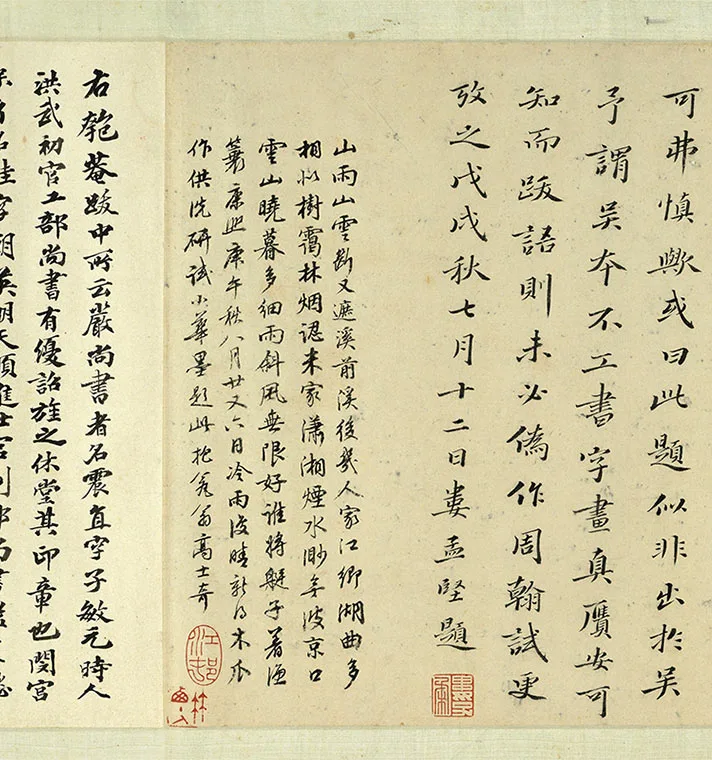 可弗慎歟或曰此題似非出於吳
予謂吳本不工書字畫真贋安可
知而跋語則未必偽作周翰試更
攷之戊戌秋七月十二日婁孟堅題
山雨山雲斷又遮溪前溪後幾人家江鄉湖曲多
相似樹靄林烟認米家瀟湘煙水渺無波京口
雲山曉暮多細雨斜風無限好誰將艇子著漁
蓑康熙庚午秋八月廿又六日冷雨後晴新得木瓜
作供洗研試小華墨題此抱瓮翁高士奇
江邨
右匏菴跋中所云嚴尚書者名震直字子敏元時人
洪武初官工部尚書有優詔旌之休堂其印章也閔宮
名珪字朝英明天順進士官刑部尚書